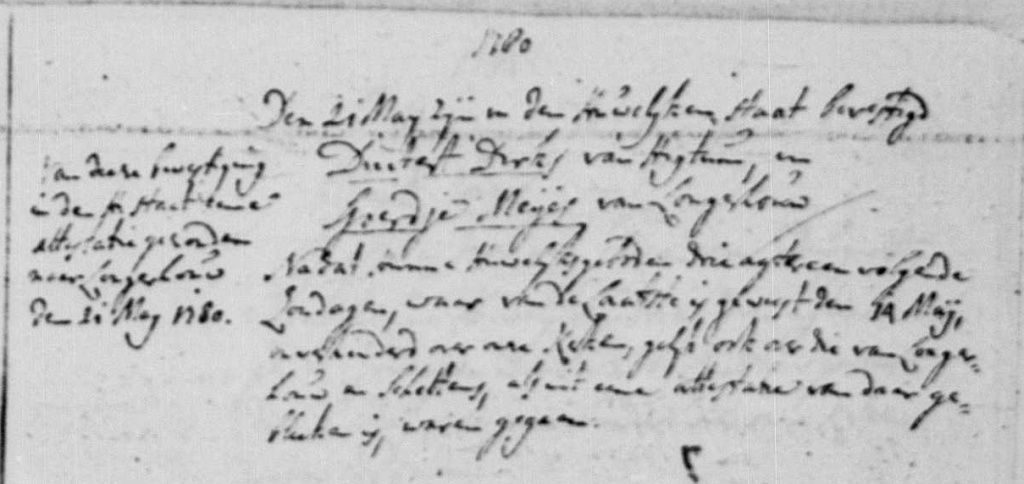 1780
Den 21 May zijn in den Huwelyken staat bevestigd
Douwe Dirks van Higtum, en
Goerdje Meijes van Longerhouw
Nadat hunne Huwelyksgeboden drie agter een volgende
Zondagen, waar van de Laatste is geweest den 14 Meij,
onverhinderd over onze Kerken, gelyk ook over die van Longer-
houw en Schettens, als uit eene attestatie van daar ge-
bleken is, waren gegaan.
Van deese bevestiging
in den H. Staat eene
attestatie gezonden
naar Longerhouw
den 21 May 1780.